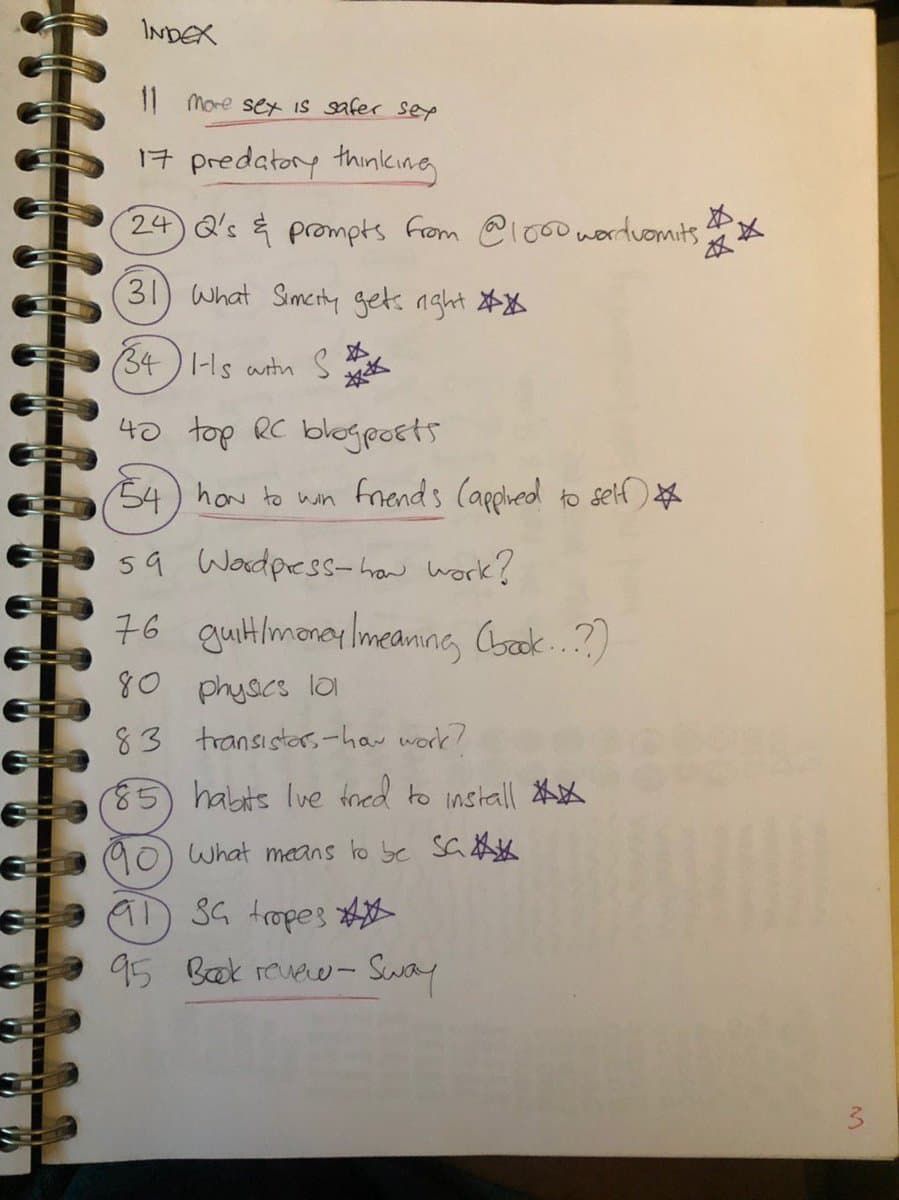 INDEX
11 more sex is safer sex
17 predatory thinking
24 Q's & prompts from @1000wordvomits
31 What Simcity gets right
34 1-1s with S
40 top RC blogposts
54 how to win friends (applied to self)
59 Wordpress-how work?
76 guilt/money/meaning (book...?)
80 physics 101
83 transistors-how work?
85 habits Ive tried to install
90 What means to be SG
91 SG tropes
95 Book review - Sway
3